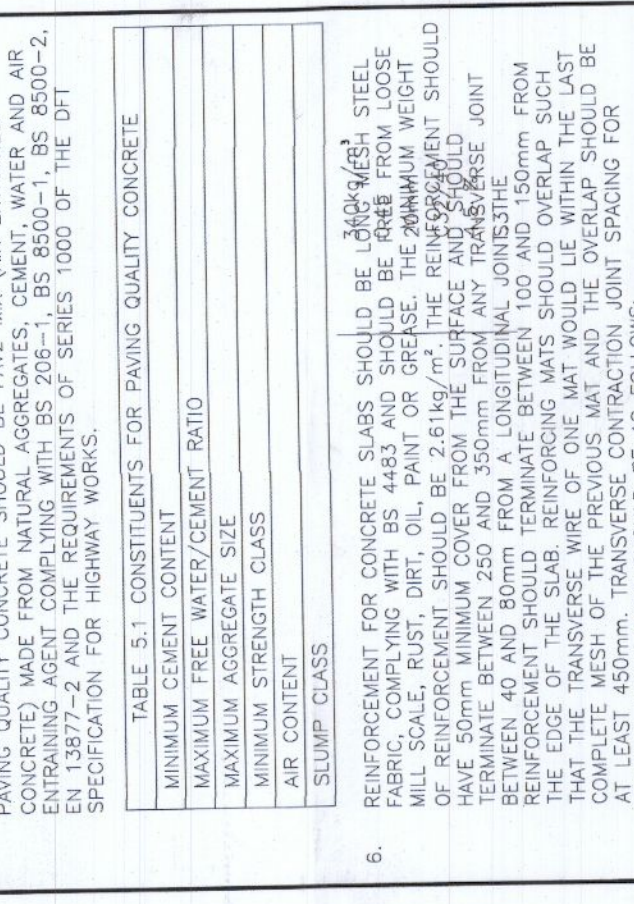 PAVING QUALITY CONCRETE SHOULD BE
CONCRETE) MADE FROM NATURAL AGGREGATES, CEMENT, WATER AND AIR
ENTRAINING AGENT COMPLYING WITH BS 206-1, BS 8500-1, BS 8500-2,
EN 13877-2 AND THE REQUIREMENTS OF SERIES 1000 OF THE DFT
SPECIFICATION FOR HIGHWAY WORKS.
TABLE 5.1 CONSTITUENTS FOR PAVING QUALITY CONCRETE
MINIMUM CEMENT CONTENT
MAXIMUM FREE WATER/CEMENT RATIO
MAXIMUM AGGREGATE SIZE
MINIMUM STRENGTH CLASS
AIR CONTENT
SLUMP CLASS
6. REINFORCEMENT FOR CONCRETE SLABS SHOULD BE LONG MESH STEEL
FABRIC, COMPLYING WITH BS 4483 AND SHOULD BE FREE FROM LOOSE
MILL SCALE, RUST, DIRT, OIL, PAINT OR GREASE. THE MINIMUM WEIGHT
OF REINFORCEMENT SHOULD BE 2.61kg/m². THE REINFORCEMENT SHOULD
HAVE 50mm MINIMUM COVER FROM THE SURFACE AND SHOULD
TERMINATE BETWEEN 250 AND 350mm FROM ANY TRANSVERSE JOINT
BETWEEN 40 AND 80mm FROM A LONGITUDINAL JOINT. THE
REINFORCEMENT SHOULD TERMINATE BETWEEN 100 AND 150mm FROM
THE EDGE OF THE SLAB. REINFORCING MATS SHOULD OVERLAP SUCH
THAT THE TRANSVERSE WIRE OF ONE MAT WOULD LIE WITHIN THE LAST
COMPLETE MESH OF THE PREVIOUS MAT AND THE OVERLAP SHOULD BE
AT LEAST 450mm. TRANSVERSE CONTRACTION JOINT SPACING FOR